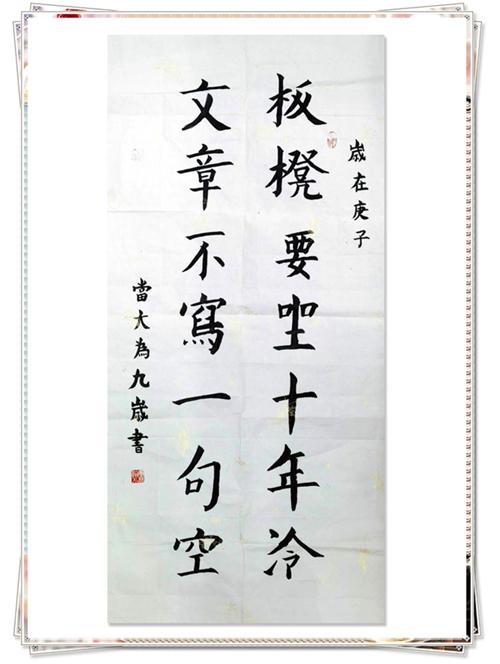 歲在庚子
板櫈要坐十年冷
文章不寫一句空
當大為九歲書